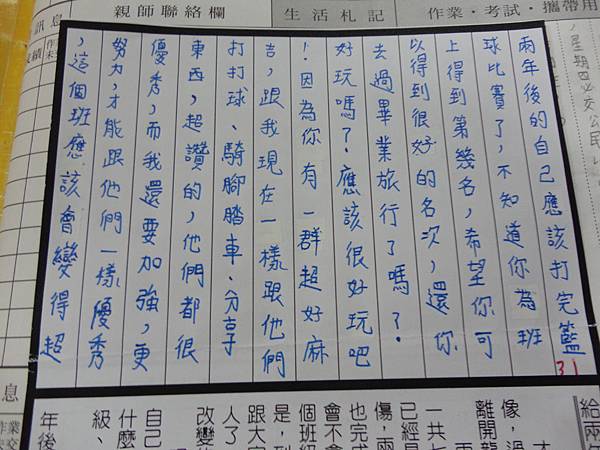 訊息
親師聯絡欄
生活札記
作業・考試・攜帶用
,星期四必交公民
兩年後的自己應該打完籃
球比賽了,不知道你為班
上得到第幾名,希望你可
以得到很好的名次,還你
去過畢業旅行了嗎?
好玩嗎?應該很好玩吧
!因為你有一群超好麻
吉,跟我現在一樣跟他們
打打球、騎腳踏車、分享
東西,超讚的,他們都很
優秀,而我還要加強,更
努力,才能跟他們一樣優秀
,這個班應該會變得超
31
給兩年
像,過
離開龍
一共七
已經
傷,兩
也完成
會不會
個班級
是,到
跟大家
人了
改變
自己
什麼
級、
年後
息